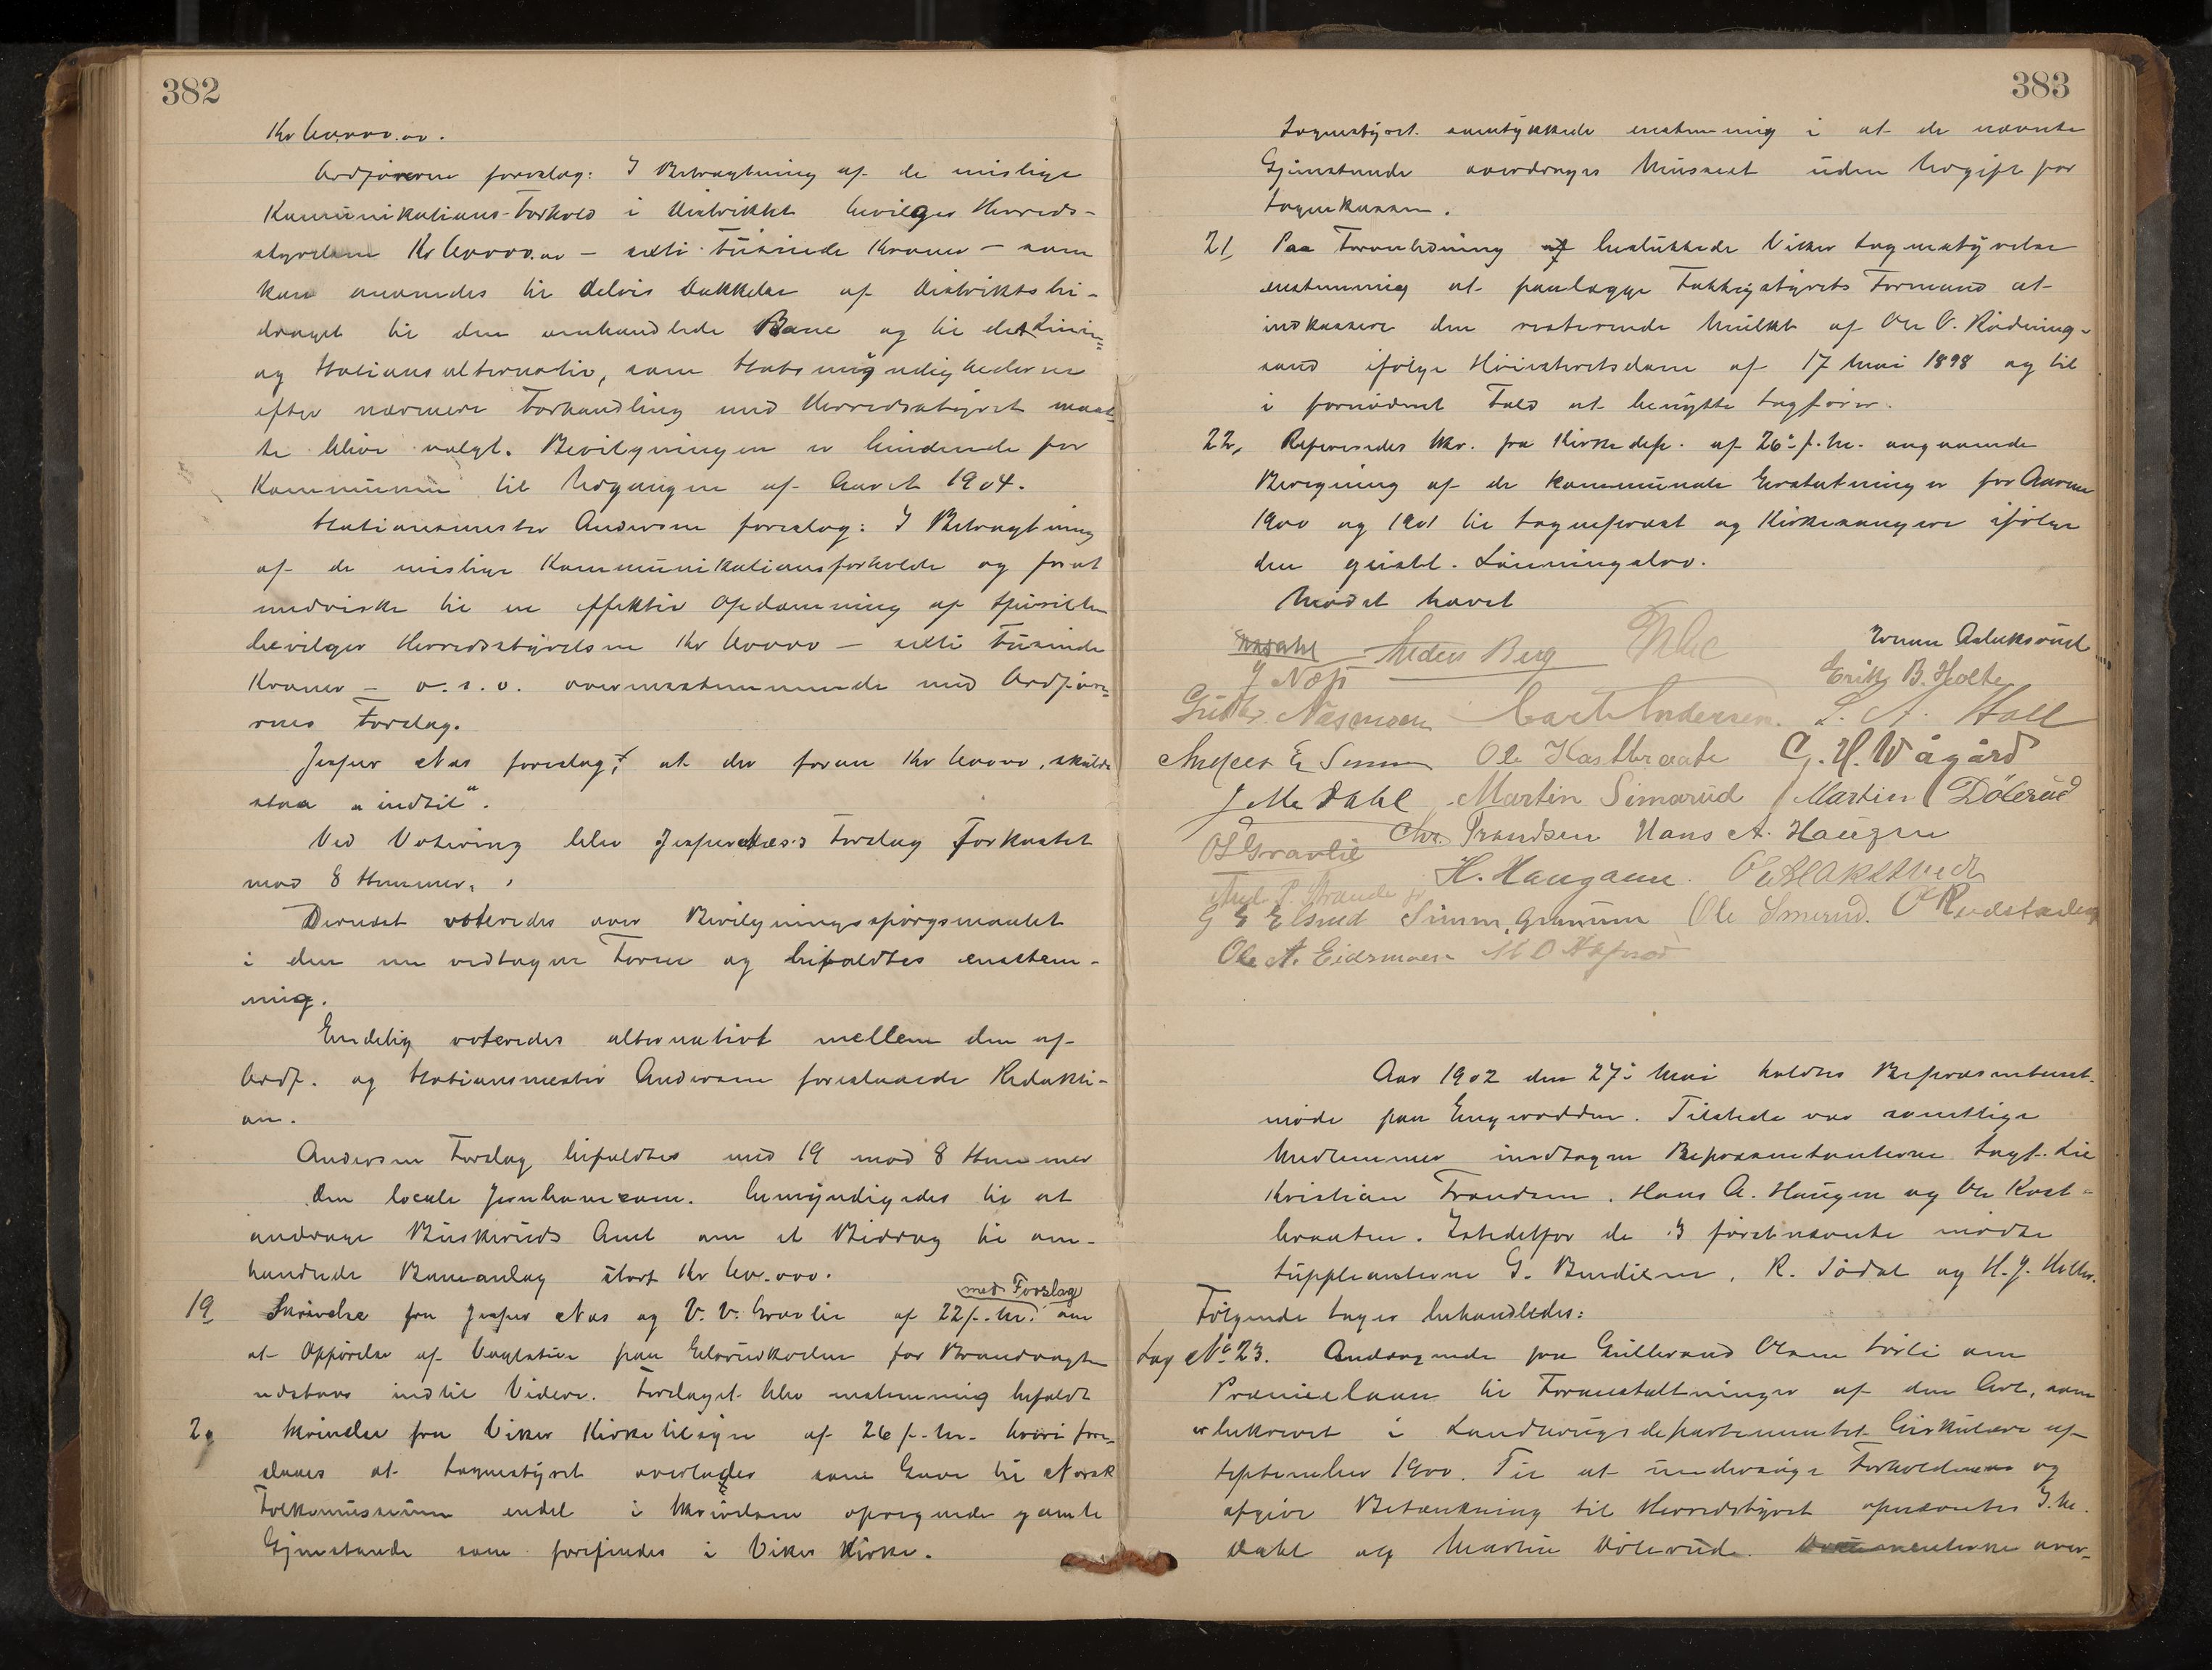 382
Kr 60000.00.
Ordføreren foreslog: I Betragtning af de mislige
Kommunikations-Forhold i Distriktet bevilger Herreds-
styrelsen Kr 60000.00 – seksti tusinde Kroner – som
kan anvendes til delvis Dækkelse af Distriktsbi-
draget til den omhandlede Bane og til det Linie-
og Stationsalternativ, som Statsmyndighederne
efter nærmere Forhandling med Herredsstyret maat-
te blive valgt. Bevilgningen er bindende for
Kommunen til Udgangen af Aaret 1904.
Stationsmester Andersen foreslog: I Betragtning
af de mislige Kommunikationsforholde og for at
medvirke til en effektiv Opdæmning af Spirillen
bevilger Herredsstyrelsen Kr 60000 – seksti tusinde
Kroner – o.s.v. overensstemmende med Ordføre-
rens Forslag.
Jesper Næs foreslog, at der foran Kr 60000, skulde
staa "indtil".
Ved Votering blev Jesper Næs's Forslag forkastet
mod 8 Stemmer.
Dernæst voteredes over Bevilgningsspørgsmaalet
i den nu vedtagne Form og bifaldtes enstem-
mig.
Endelig voteredes alternativt mellem den af
Ordf. og Stationsmester Andersen foreslaaede Redakti-
on.
Andersens Forslag bifaldtes med 19 mod 8 Stemmer
Den locale Jernbanecom. bemyndigedes til at
andrage Buskeruds Amt om et Bidrag til om-
handlede Baneanlæg stort Kr 60.000.
med Forslag
19 Skrivelse fra Jesper Næs og V. V. Gravlie af 22 f. M. om
at Opførelse af Vagtstue paa Elsrudkollen for Brandvagten
udstaar indtil Videre. Forslaget blev enstemmig bifaldt
20 Skrivelse fra Viker Kirketilsyn af 26 f. M. hvori fore-
slaaes at Sognestyret overlader som Gave til Norsk
Folkemuseum endel i Skrivelsen opregnede gamle
Gjenstande som forefindes i Viker Kirke.
383
Sognestyret samtykkede enstemmig i at de nævnte
Gjenstande overdrages Museet uden Udgift for
Sognekassen.
21, Paa Foranledning af besluttede Viker Sognestyrelse
enstemmig at paalægge Fattigstyrets Formand at
indkassere den resterende Mulkt af Ole O. Rødning-
sand ifølge Høiesteretsdom af 17 Mai 1898 og til
i fornødent Fald at benytte Sagfører.
22, Refereredes Skr. fra Kirkedep. af 26de f. M. angaaende
Beregning af de kommunale Erstatninger for Aarene
1900 og 1901 til Sogneprest og Kirkesangere ifølge
den geistl. Lønningslov.
Mødet hævet
Anders Berg
J Næs Erik B. Holte
Gulbr. Næsmoen Carl Andersen. L. A. Hall
Anders E Simen Ole Kastbraate G. H. Vågård
J. M. Dahl Martin Simarud Martin Dölerud
O Gravlie Chr. Frandsen Hans A. Haugen
H. Haugann. O Blakstvedt
G E Elsrud Simen Ole Smerud.
Ole A. Eidsmoen
Aar 1902 den 27de Mai holdtes Repræsentant-
møde paa Engerodden. Tilstede var samtlige
Medlemmer undtagen Repræsentanterne Sagf. Lie
Kristian Frandsen, Hans A. Haugen og Ole Kast-
braaten. Istedetfor de 3 førstnævnte mødte
Suppleanterne G. Bendiksen, R. Sødal og H. J. Holte.
Følgende Sager behandledes:
Sag No 23. Andragende fra Gulbrand Olsen Sørli om
Præmielaan til Foranstaltninger af den Art, som
er beskrevet i Landbrugsdepartementet Cirkulære af
September 1900. Til at undersøge Forholdene og
afgive Betænkning til Herredsstyret opnævntes J. M.
Dahl og Martin Dölerud. Dokumenterne over-